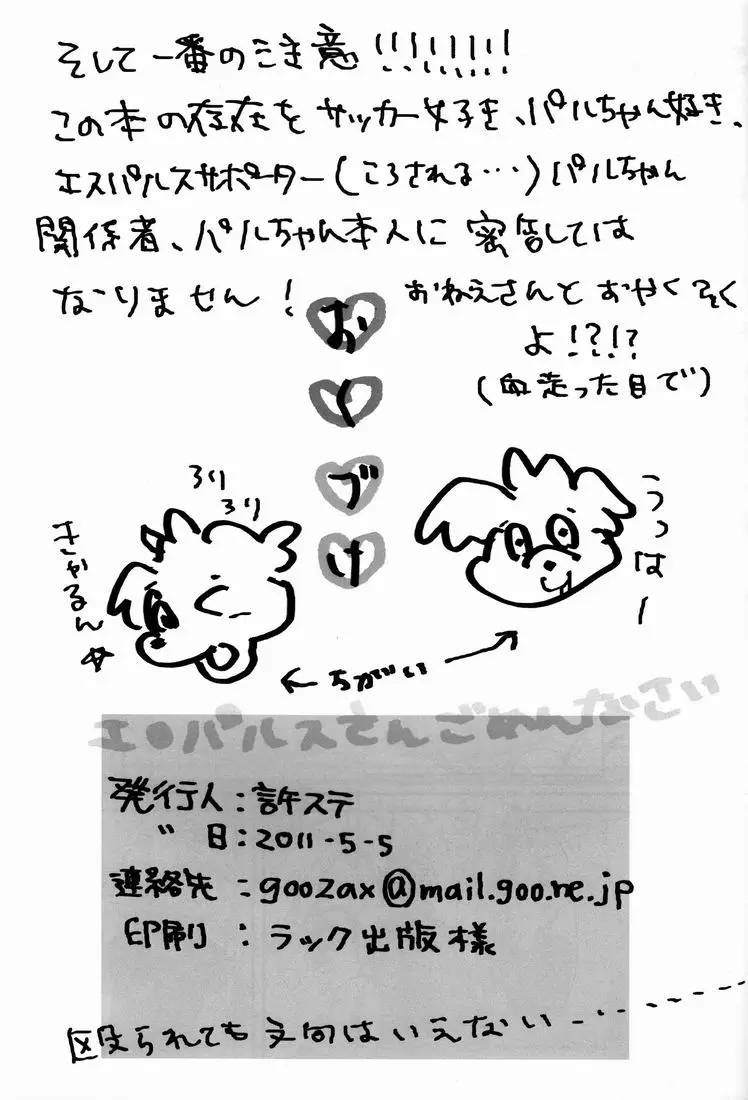 そして一番のご注意!!!!!!!!
この本の存在をサッカー好き、パルちゃん好き、
エスパルスサポーター(ころされる…)パルちゃん
関係者、パルちゃん本人に密告しては
なりません!
おねえさんとおやくそく
よ!?!?
(血走った目で)
おくづけ
ろり
ろり
きゃるん☆
うっはー
←ちがい→
エ●パルスさんごめんなさい
発行人:許ステ
〃日:2011-5-5
連絡先:goozax@mail.goo.ne.jp
印刷:ラック出版様
殴られても文句はいえない-------